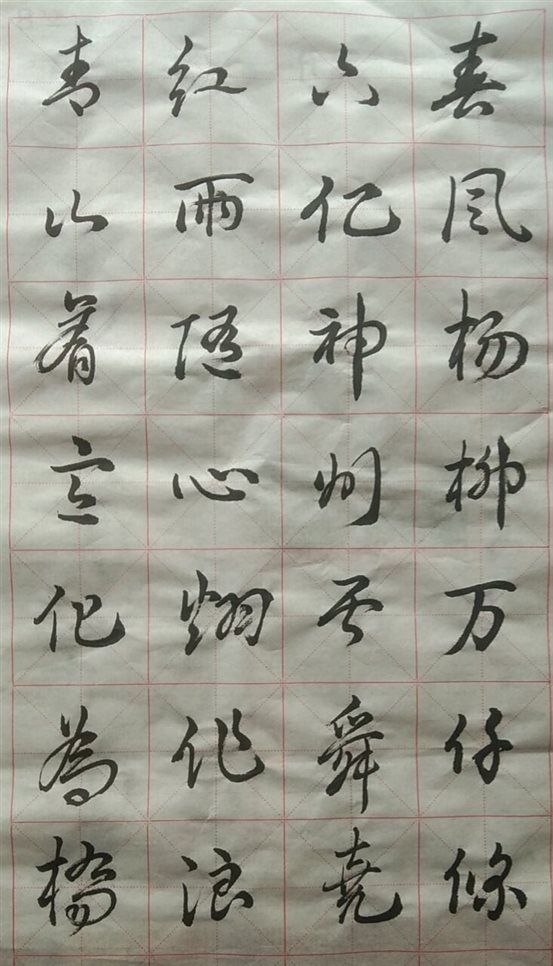 春风杨柳万仟條
六亿神州尽舜尧
红雨随心翻作浪
青山着意化為橋